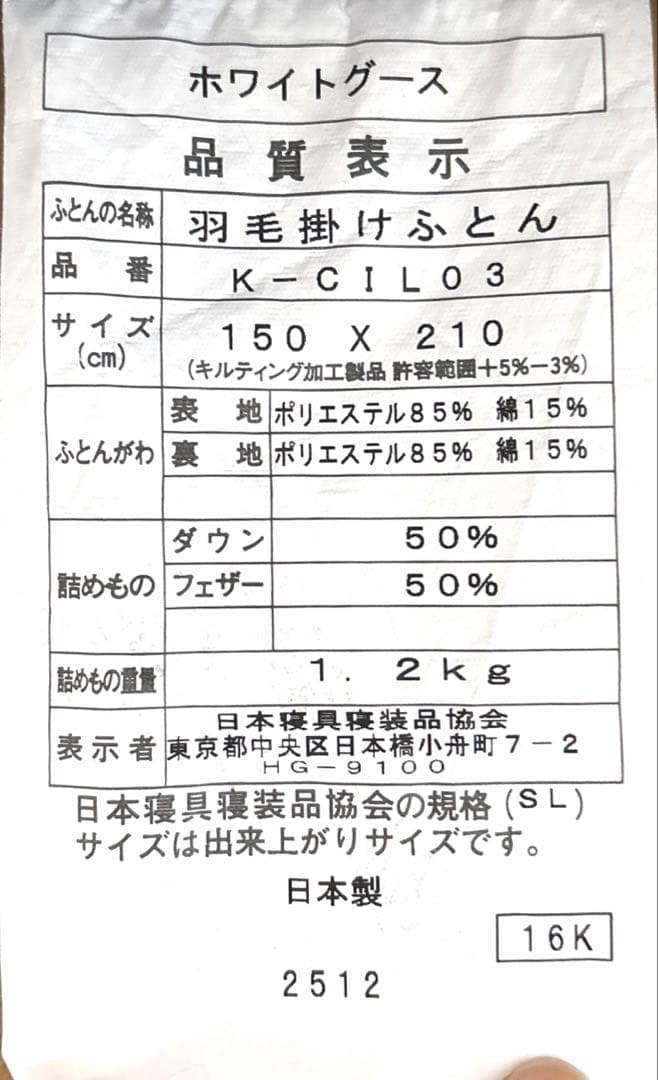 ホワイトグース
品質表示
ふとんの名称 羽毛掛けふとん
品番 K-CIL03
サイズ(cm) 150 X 210
(キルティング加工製品 許容範囲+5%-3%)
ふとんがわ 表地 ポリエステル85% 綿15%
裏地 ポリエステル85% 綿15%
詰めもの ダウン 50%
フェザー 50%
詰めもの重量 1.2kg
表示者 日本寝具寝装品協会
東京都中央区日本橋小舟町7-2
HG-9100
日本寝具寝装品協会の規格(SL)
サイズは出来上がりサイズです。
日本製
16K
2512